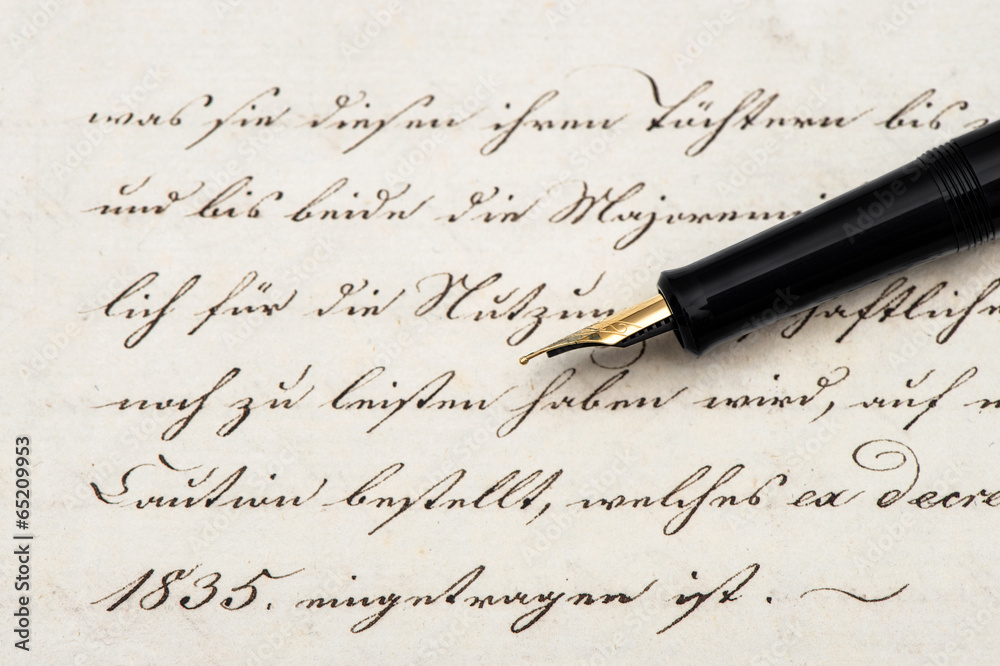 was sie diesen ihren Töchtern bis
und bis beide die Majorenni
lich für die Nutzun haftliche
noch zu leisten haben wird, auf
Caution bestellt, welches ex decre
1835. eingetragen ist.
Adobe Stock | #65209953